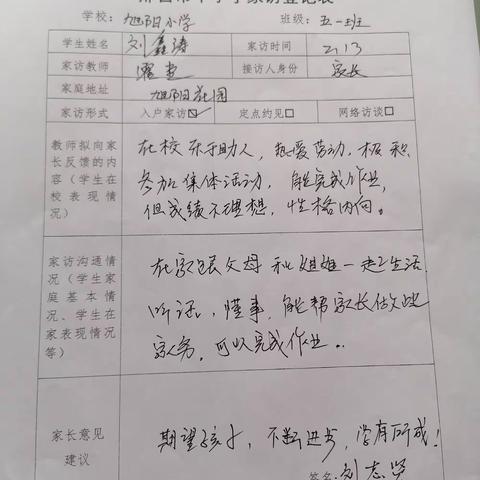 学校：旭阳小学 班级：五一班
学生姓名 刘鑫涛 家访时间 2.13
家访教师 接访人身份 家长
家庭地址 旭阳花园
家访形式 入户家访☑ 定点约见□ 网络访谈□
教师拟向家
长反馈的内
容（学生在
校表现情
况）
在校乐于助人，热爱劳动，积极
参加集体活动，能完成作业，
但成绩不理想，性格内向。
家访沟通情
况（学生家
庭基本情
况、学生在
家表现情况
等）
在家跟父母和姐姐一起生活，
听话，懂事，能帮家长做些
家务，可以完成作业。
家长意见
建议
期望孩子，不断进步，学有所成！
签名：刘志